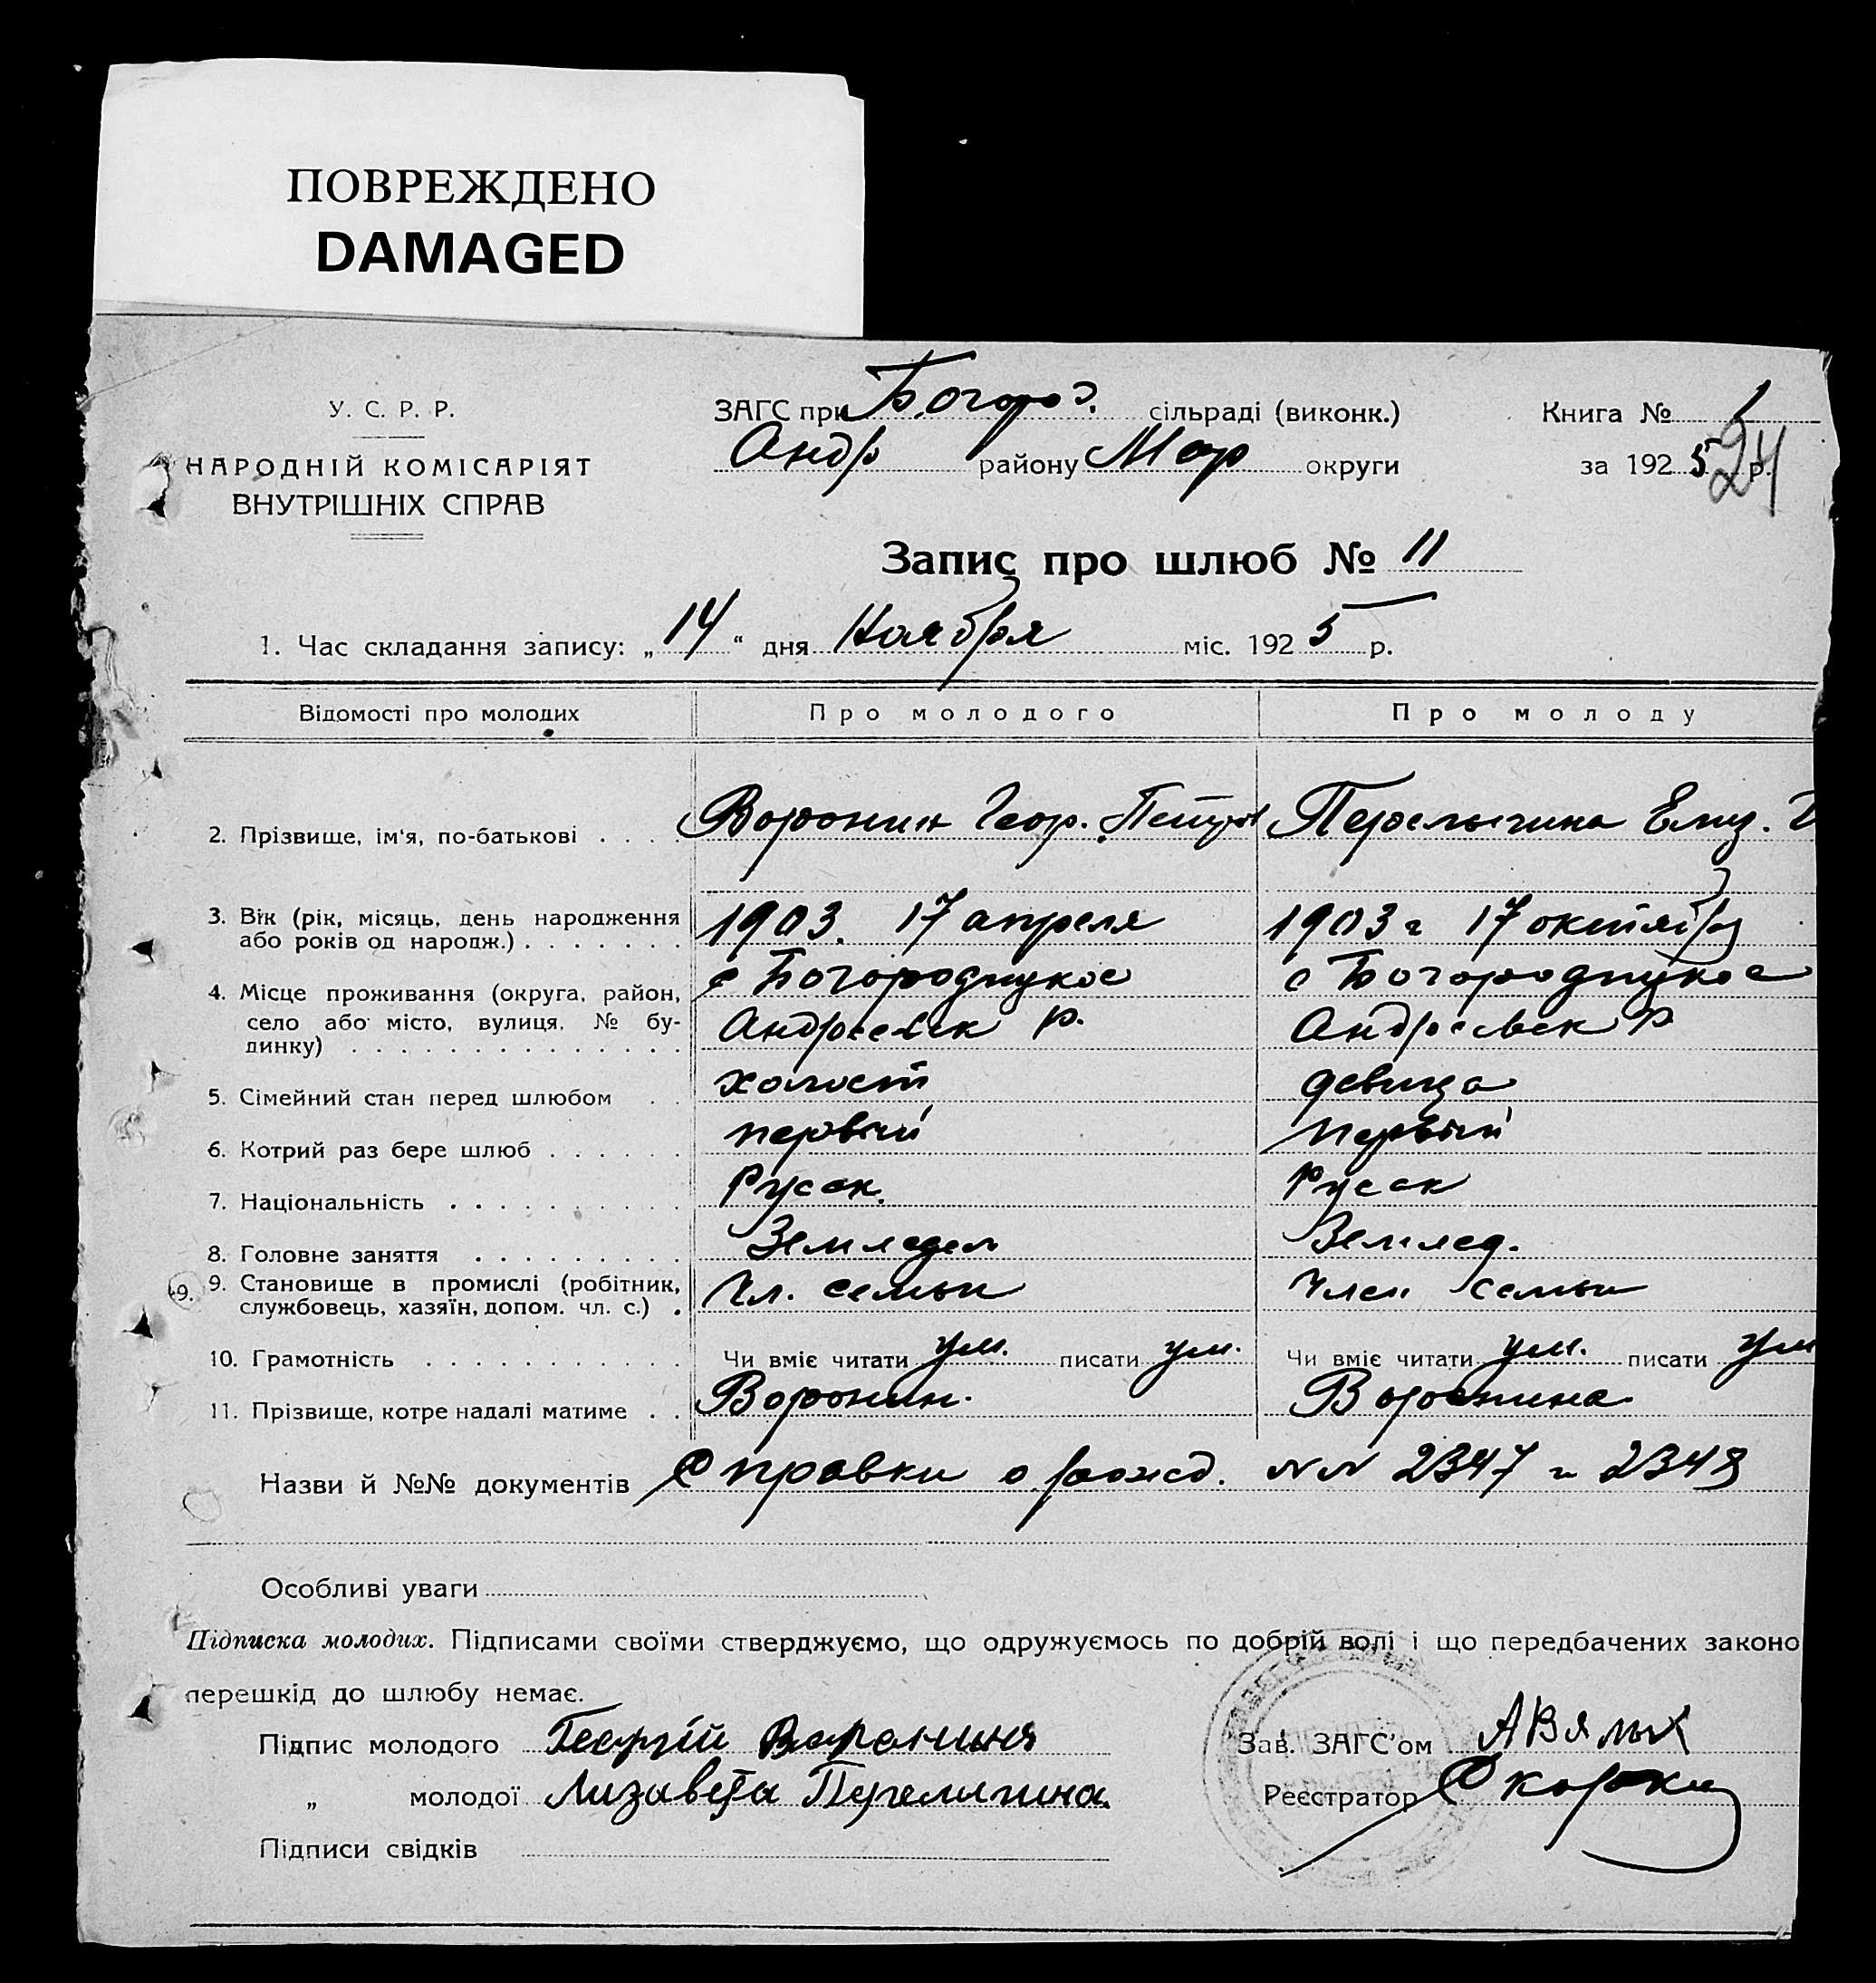 ПОВРЕЖДЕНО
DAMAGED
У. С. Р. Р.
НАРОДНІЙ КОМІСАРІЯТ
ВНУТРІШНІХ СПРАВ
ЗАГС при Богор. сільраді (виконк.)
Андр району Мар округи
Книга № 1
за 1925 р.
24
Запис про шлюб № 11
1. Час складання запису: „14“ дня Ноября міс. 1925 р.
Відомості про молодих Про молодого Про молоду
2. Прізвище, ім'я, по-батькові . . . . Воронин Геор. Петров Перелыгина Елиз.
3. Вік (рік, місяць, день народження
або років од народж.) . . . . . . . 1903. 17 апреля 1903 г 17 октября
4. Місце проживання (округа, район, с Богородицкое с Богородицкое
село або місто, вулиця, № бу- Андреевск р. Андреевск р
динку) . . . . . . . . . . . . . .
5. Сімейний стан перед шлюбом . . холост девица
6. Котрий раз бере шлюб . . . . . . первый первый
7. Національність . . . . . . . . . . Русск. Русск
8. Головне заняття . . . . . . . . . Земледел Землед.
49. 9. Становище в промислі (робітник, Чл. семьи Член семьи
службовець, хазяїн, допом. чл. с.) .
10. Грамотність . . . . . . . . . . . . Чи вміє читати ум. писати ум. Чи вміє читати ум. писати ум
11. Прізвище, котре надалі матиме . . Воронин. Воронина
Назви й №№ документів Справки о рожд. NN 2347 и 2348
Особливі уваги
Підписка молодих. Підписами своїми стверджуємо, що одружуємось по добрій волі і що передбачених законо
перешкід до шлюбу немає.
Підпис молодого Георгій Варонинъ
„ молодої Лизавета Перелыгина
Підписи свідків
Зав. ЗАГС'ом
Реєстратор